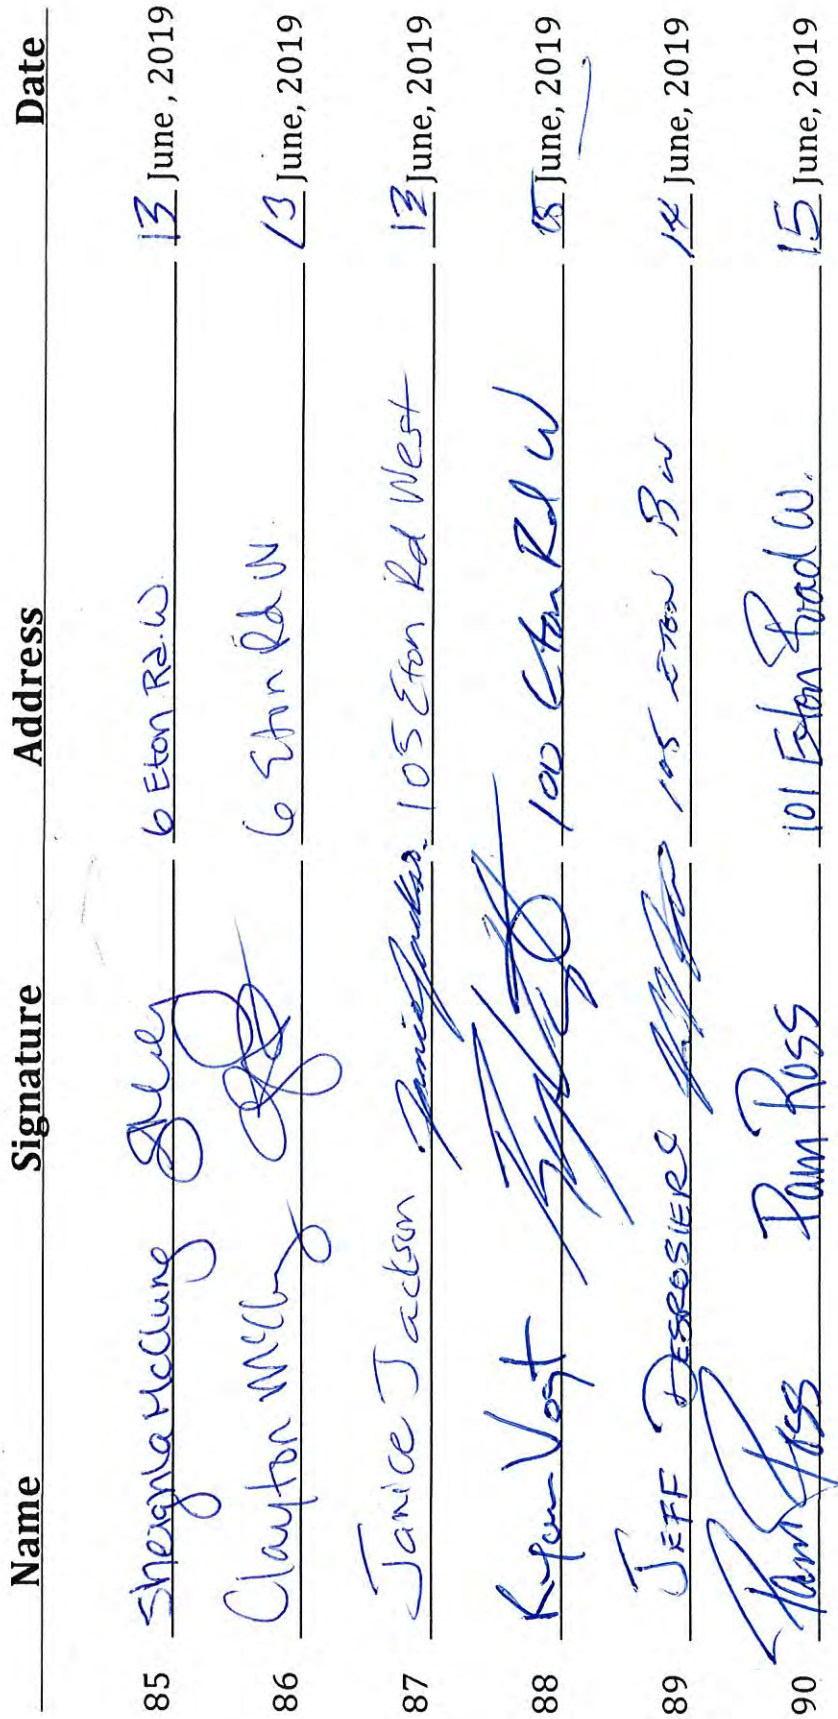 Name Signature Address Date
85 Sheranna McClung 6 Eton Rd. W. 13 June, 2019
86 Clayton McClung 6 Eton Rd W 13 June, 2019
87 Janice Jackson Janice Jackson 105 Eton Rd West 13 June, 2019
88 Vogt 100 Eton Rd W June, 2019
89 JEFF DESROSIERS 105 ETON 14 June, 2019
90 Pam Ross Pam Ross 101 Eton Road W. 15 June, 2019